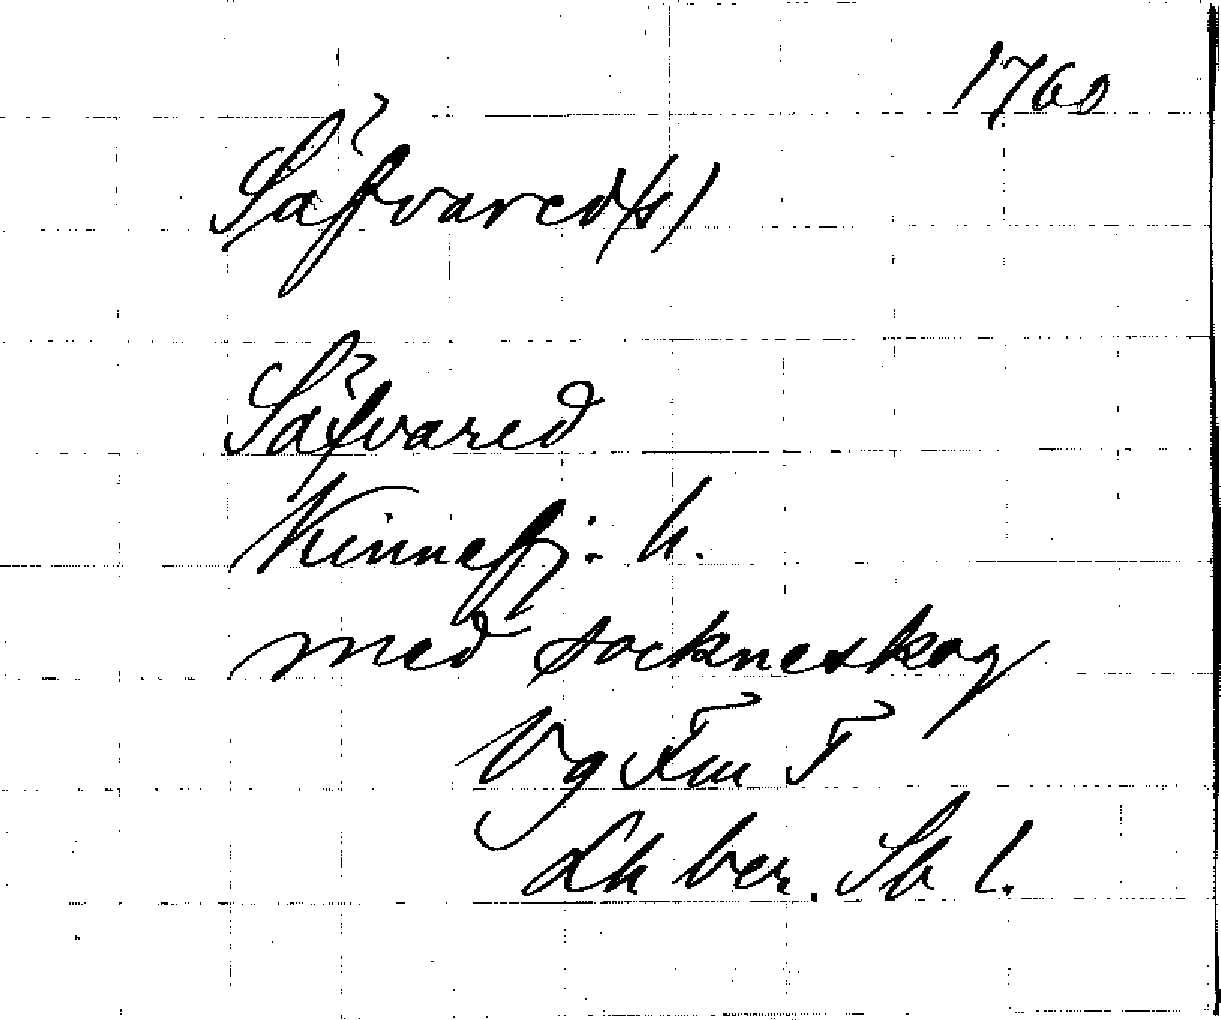 1760
Säfvared(s)
Säfvared
Kinnefj: h.
med sockneskog
Vg Fm F
Lh ber. Sb l.